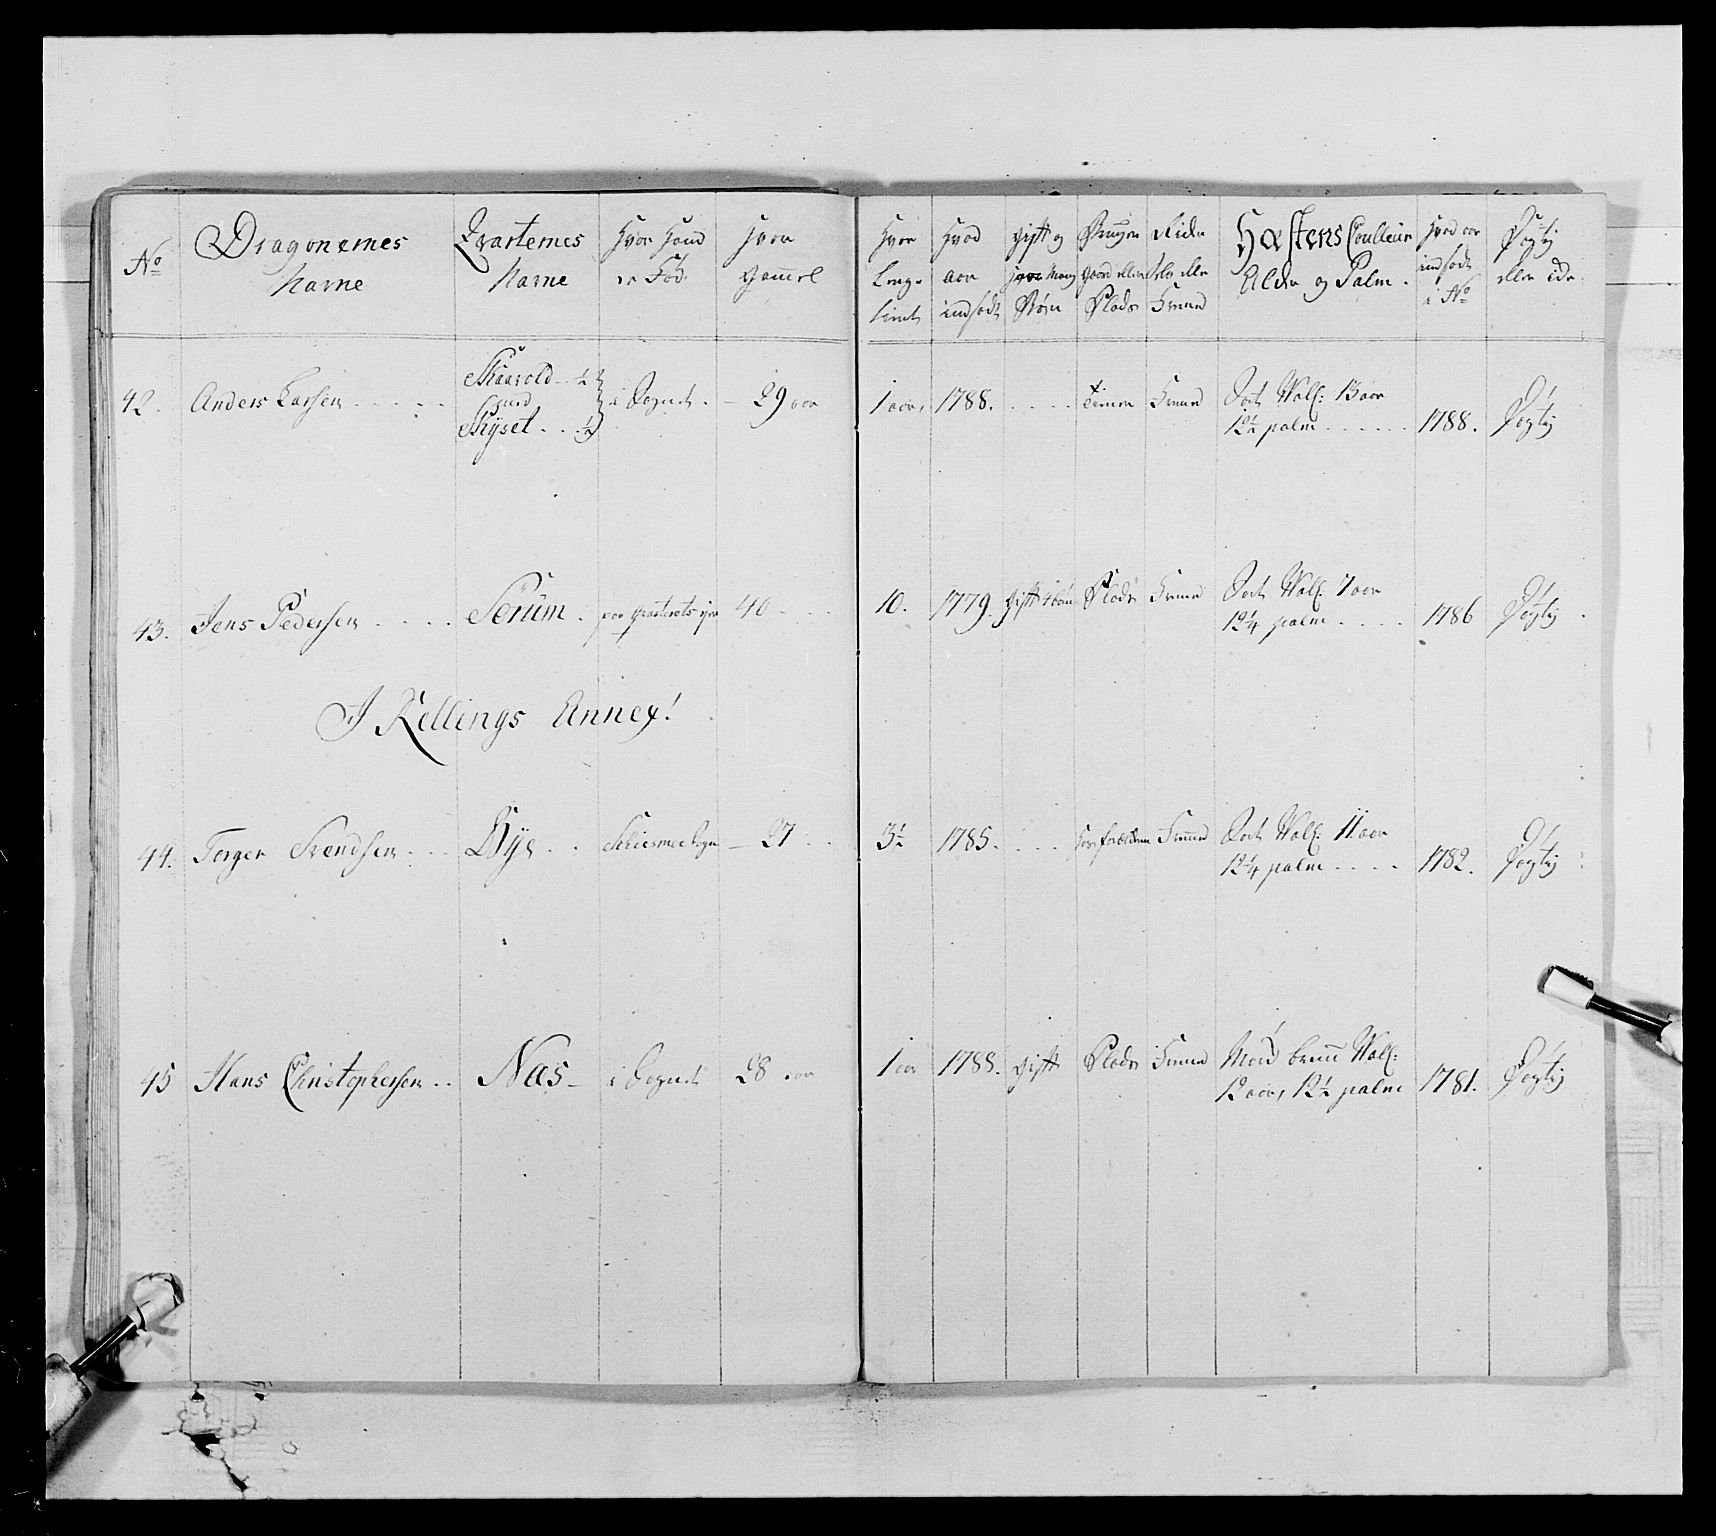 No Dragonernes Navne Qvarternes Navne Hvor Hand er Fød Hvor gammel Hvor Lenge tient Hvad aar indsadt gift og hvor Mang Børn Bruger gaard eller Plads Rider selv eller Svend Hæstens Couleur Alder og Palm. Hvad aar indsadt i No Døgtig eller ide
42. Anders Larsen Skaarold ½ i Sognet. 29 aar 1 aar, 1788. Tiener Svend Sort Wall: 13 aar
og Skyset ½ 12½ palm 1788. Døgtig
43. Jens Pedersen Serum. 40 10. 1779. gift 4 børn Plads Svend Sort Wall: 7 aar
12¼ palm 1786 Døgtig
I Rellings Annex!
44. Torger Svendsen Bye Skiesmoe Sogn 27 3½ 1785. Hos forældrene Svend Sort Wall: 11 aar
12¼ palm 1782. Døgtig
45 Hans Christophersen Næs i Sognet 28 aar 1 aar 1788. gift Plads Svend Mord brun Wall:
12 aar, 12½ palm 1781. Døgtig